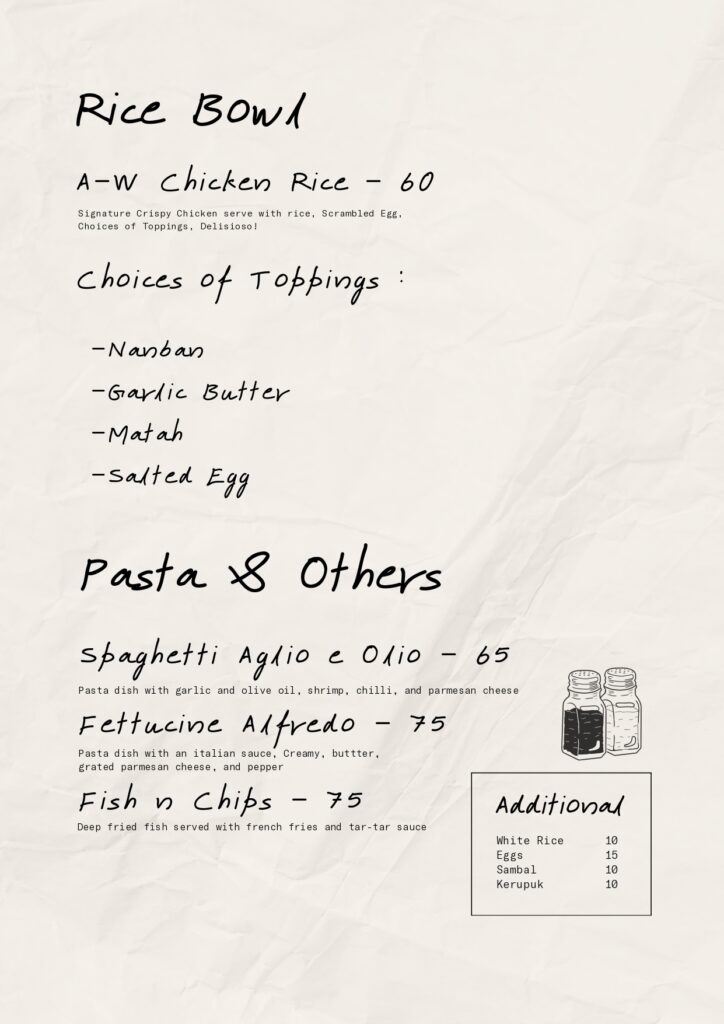 Rice Bowl
A-W Chicken Rice - 60
Signature Crispy Chicken serve with rice, Scrambled Egg,
Choices of Toppings, Delisioso!
Choices of Toppings :
-Nanban
-Garlic Butter
-Matah
-Salted Egg
Pasta & Others
Spaghetti Aglio e Olio - 65
Pasta dish with garlic and olive oil, shrimp, chilli, and parmesan cheese
Fettucine Alfredo - 75
Pasta dish with an italian sauce, Creamy, buttter,
grated parmesan cheese, and pepper
Fish n Chips - 75
Deep fried fish served with french fries and tar-tar sauce
Additional
White Rice 10
Eggs 15
Sambal 10
Kerupuk 10